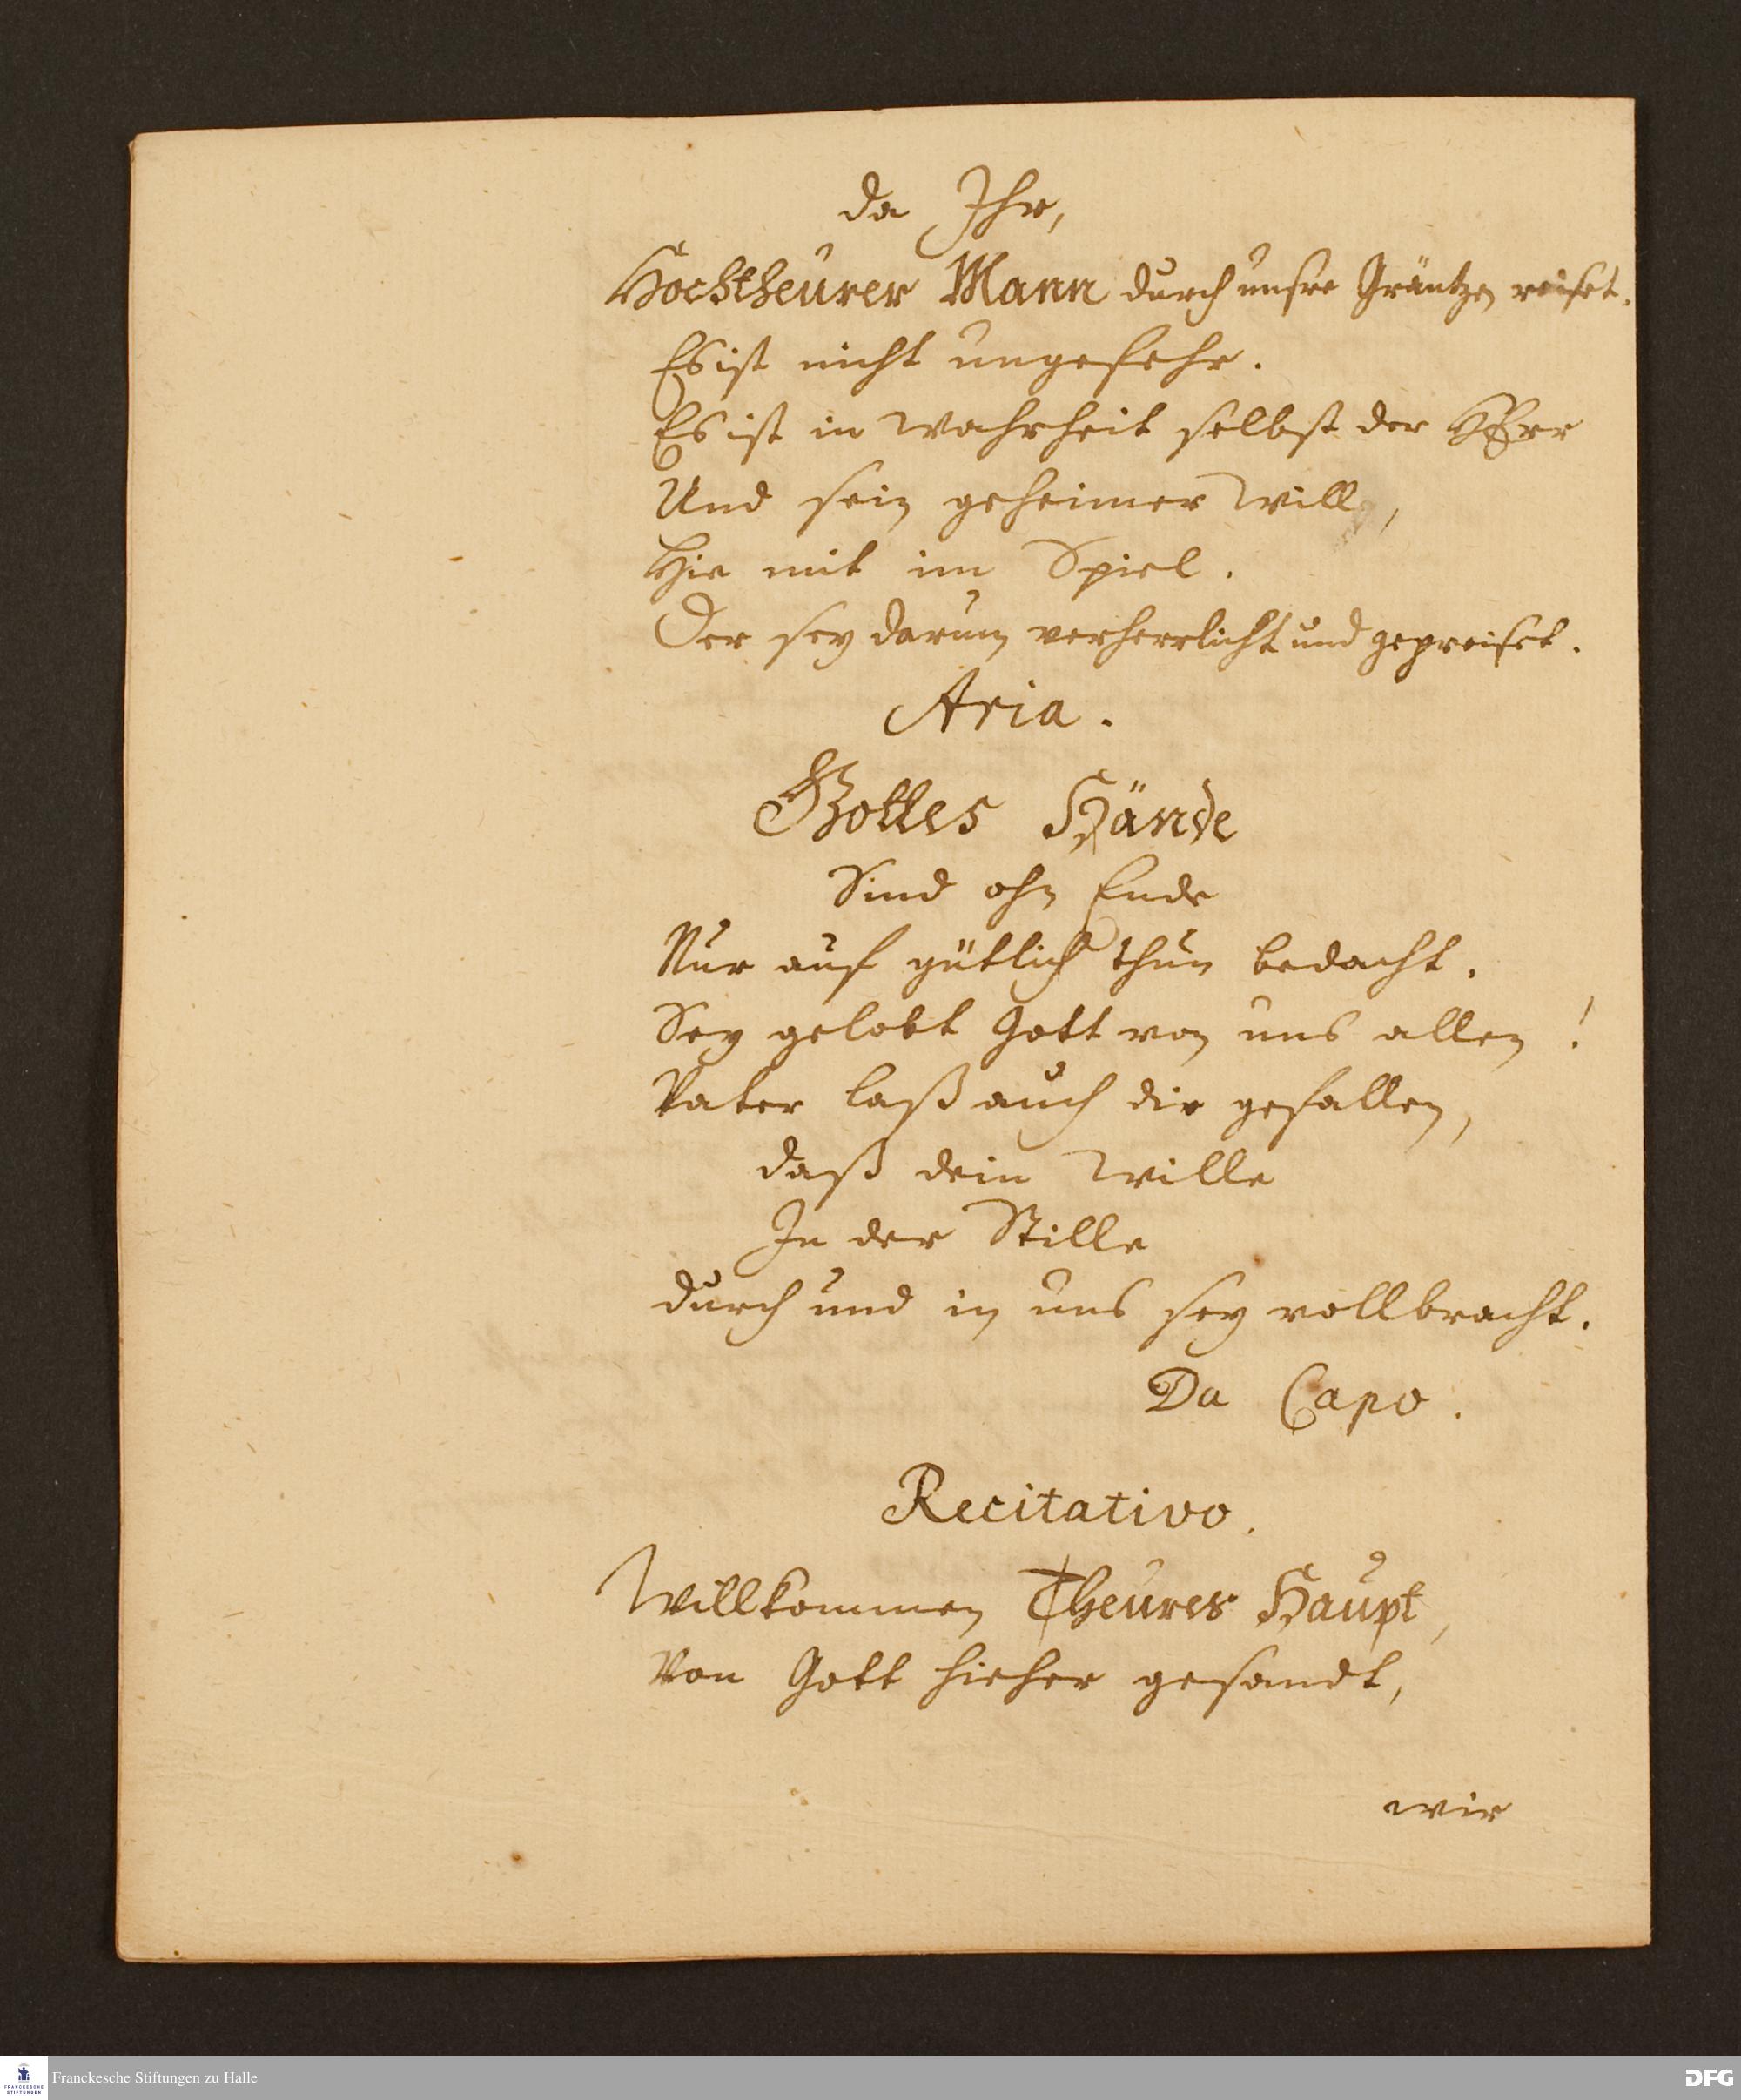 da Ihr,
Hochtheurer Mann durch unsre Gräntzen reiset.
Es ist nicht ungefehr.
Es ist in Wahrheit selbst der HErr
Und sein geheimer Will,
Hie mit im Spiel.
Der sey darum verherrlicht und gepreiset.
Aria.
Gottes Hände
Sind ohn Ende
Nur auf gütlich thun bedacht.
Sey gelobt Gott von uns allen!
Vater laß auch dir gefallen,
daß dein Wille
In der Stille
durch und in uns sey vollbracht.
Da Capo.
Recitativo.
Willkommen Theures Haupt,
Von Gott hieher gesandt,
wir
Franckesche Stiftungen zu Halle
FRANCKESCHE
STIFTUNGEN
DFG